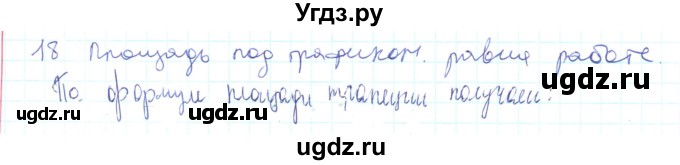 Угдз.ру
18 Площадь под графиком. равна работе.
По. формуле площади трапеции получаем:
ugdz.ru ugdz.ru ugdz.ru
ugdz.ru ugdz.ru ugdz.ru